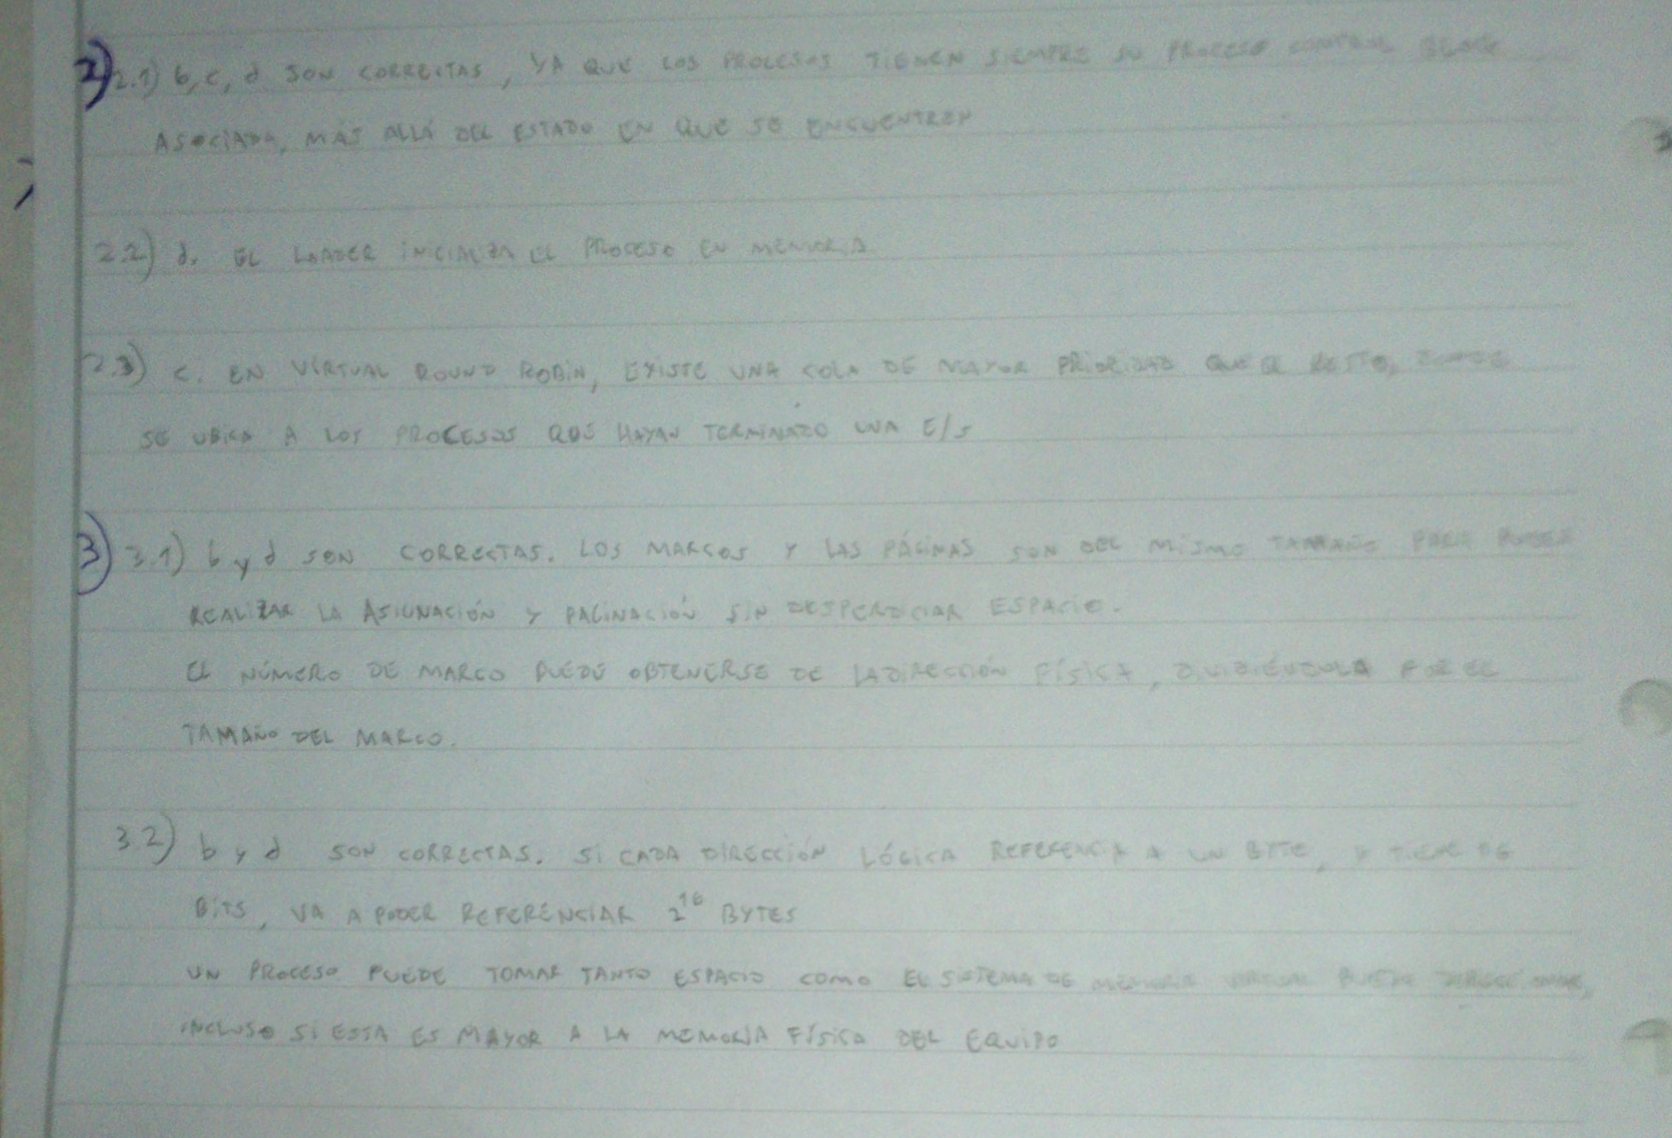 2) 2.1) b, c, d SON CORRECTAS, YA QUE LOS PROCESOS TIENEN SIEMPRE SU PROCESO CONTROL BLOCK
ASOCIADA, MÁS ALLÁ DEL ESTADO EN QUE SE ENCUENTREN
2.2) d. EL LOADER INICIALIZA EL PROCESO EN MEMORIA
2.3) c. EN VIRTUAL ROUND ROBIN, EXISTE UNA COLA DE MAYOR PRIORIDAD QUE EL RESTO, DONDE
SE UBICA A LOS PROCESOS QUE HAYAN TERMINADO UNA E/S
3) 3.1) b y d SON CORRECTAS. LOS MARCOS Y LAS PÁGINAS SON DEL MISMO TAMAÑO PARA PODER
REALIZAR LA ASIGNACIÓN Y PAGINACIÓN SIN DESPERDICIAR ESPACIO.
EL NÚMERO DE MARCO PUEDE OBTENERSE DE LA DIRECCIÓN FÍSICA, DIVIDIÉNDOLA POR EL
TAMAÑO DEL MARCO.
3.2) b y d SON CORRECTAS. SI CADA DIRECCIÓN LÓGICA REFERENCIA A UN BYTE, Y
BITS, VA A PODER REFERENCIAR 2^16 BYTES
UN PROCESO PUEDE TOMAR TANTO ESPACIO COMO EL SISTEMA DE MEMORIA VIRTUAL PUEDA
INCLUSO SI ESTA ES MAYOR A LA MEMORIA FÍSICA DEL EQUIPO